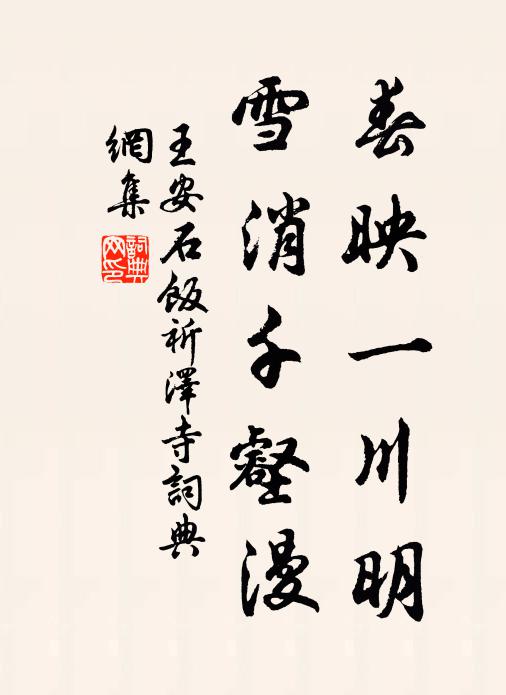 春映一川明
雪消千壑漫
王安石飯祈澤寺詞典
網集
詞典
网印